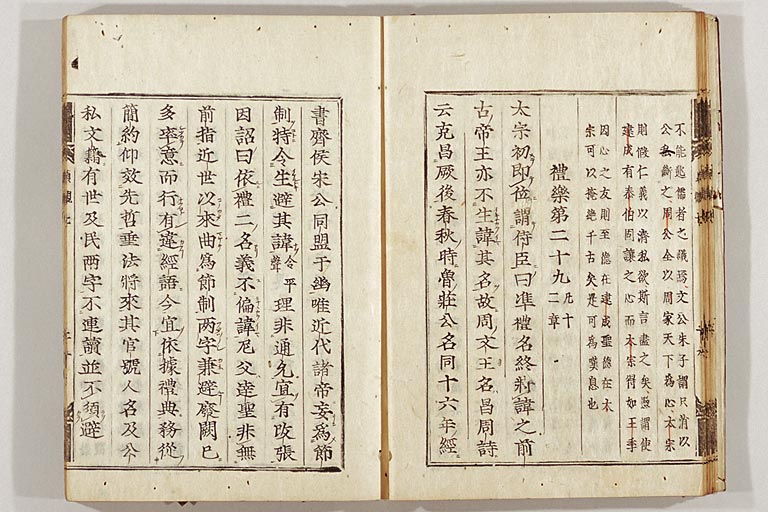 不能勉儒者之議焉文公朱子謂只消以
公去斷之周公全以周家天下為心太宗
則假仁義以濟私欲斯言盡之矣愚謂使
建成有泰伯固讓之心而太宗得如王季
因心之友則至德在建成聖德在太
宗可以掩絶千古矣是可為嘆息也
禮樂第二十九凡十二章
太宗初即位謂侍臣曰凖禮名終將諱之前
古帝王亦不生諱其名故周文王名昌周詩
云克昌厥後春秋時魯莊公名同十六年經
書齊侯宋公同盟于幽唯近代諸帝妄為節
制特令生避其諱令平聲理非通允宜有改張
因詔曰依禮二名義不偏諱尼父達聖非無
前指近世以來曲為節制兩字兼避廢闕已
多率意而行有違經語今宜依據禮典務從
簡約仰效先哲垂法將來其官號人名及公
私文籍有世及民兩字不連讀並不須避